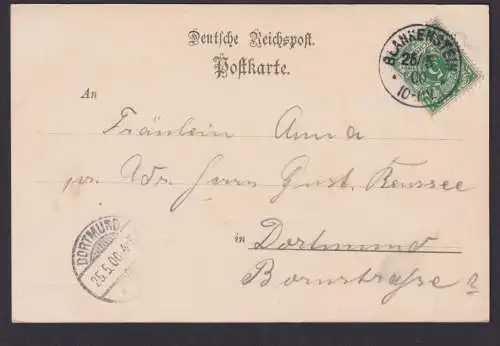 Deutsche Reichspost.
Postkarte.
BLANKENSTEIN
00
10-11V
An
Fräulein Anna
pr. Adr. Herrn Gust. Reussee
in Dortmund
Bornstraße 2
DORTMUND
26.5.00